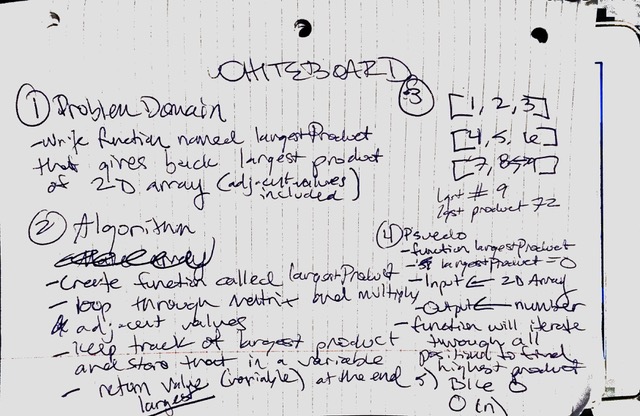 WHITEBOARD
① Problem Domain
-Write function named largestProduct
that gives back largest product
of 2-D array (adj-cent-values
included)
② Algorithm
-create function called largestProduct
- loop through matrix and multiply
adj-cent values
- keep track of largest product
and store that in a variable
- return value (variable) at the end
largest
3
[1, 2, 3]
[4, 5, 6]
[7, 8, 9]
Last # 9
product 72
④ Psuedo
-function largestProduct
largestProduct = 0
- Input ← 2D Array
- Output ← number
- function will iterate
through all
to find
highest product
5) O
O (n)